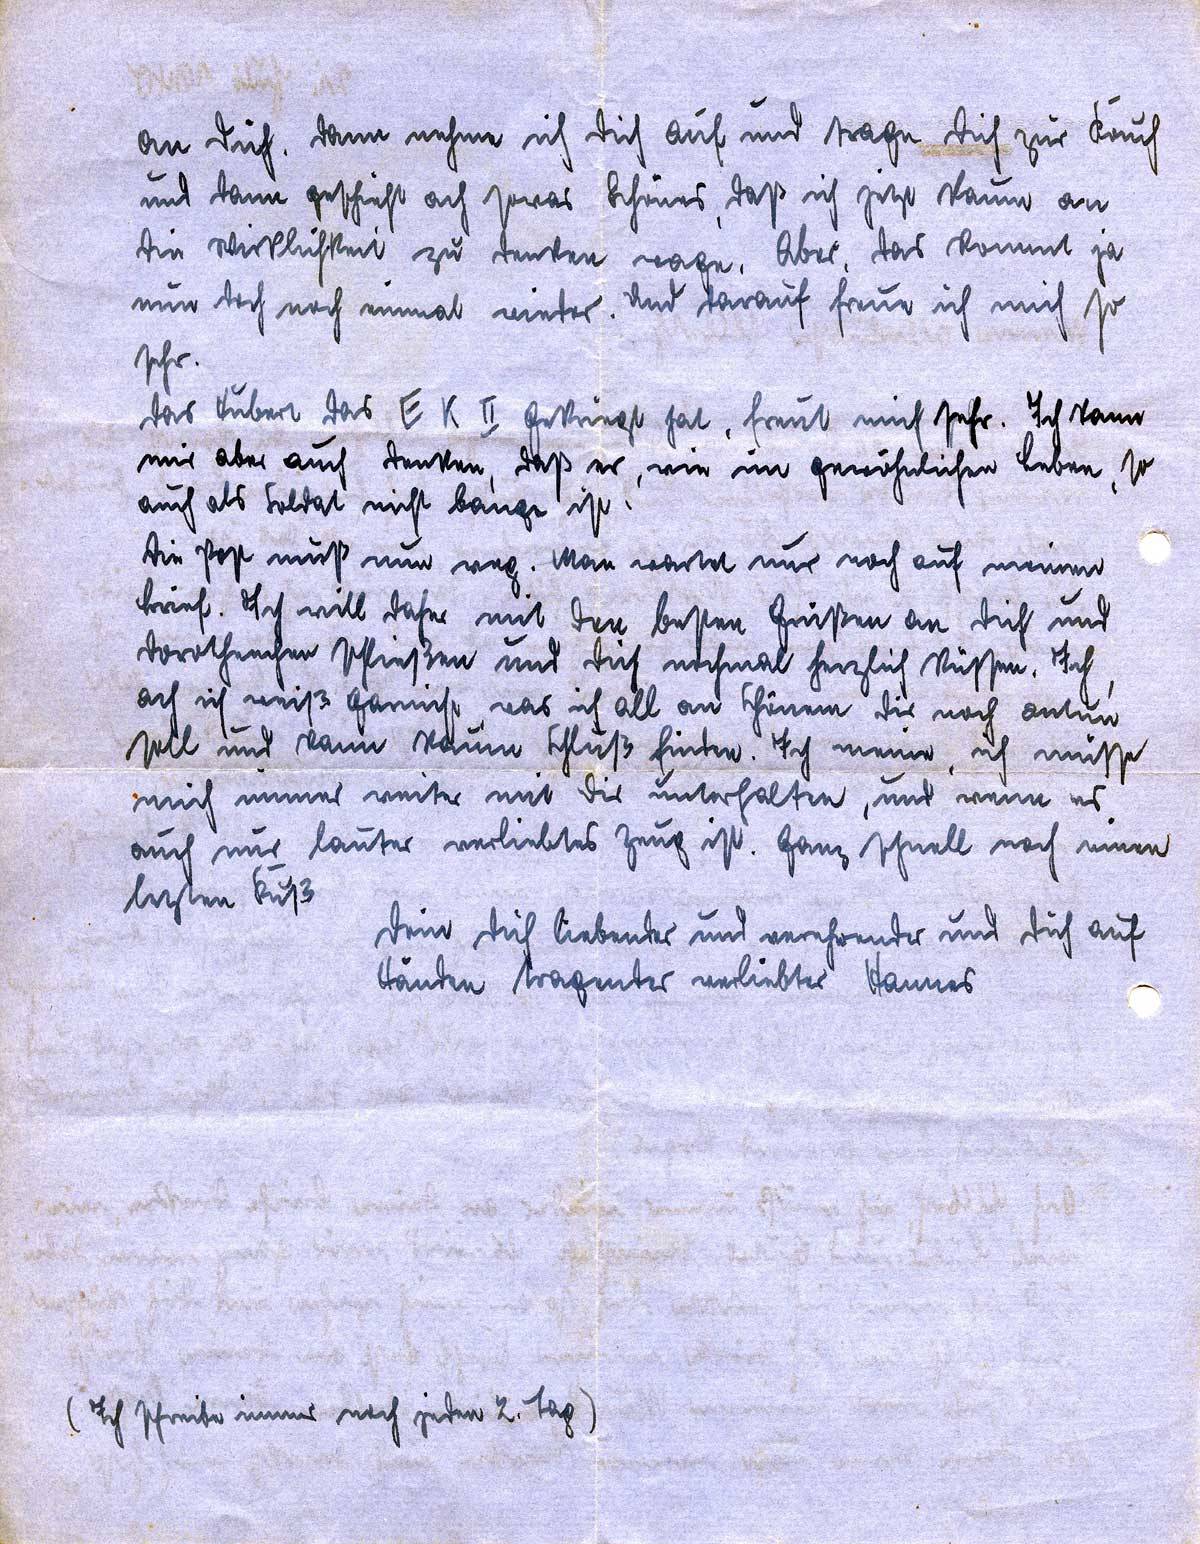 an Dich. Dann nehme ich Dich auf und trage Dich zur Couch
und dann geschieht ach sowas Schönes, daß ich jetzt kaum an
die Wirklichkeit zu denken wage. Aber, das kommt ja
nun doch noch einmal wieder. Und darauf freue ich mich so
sehr.
Das Hubert das E K II gekriegt hat, freut mich sehr. Ich kann
mir aber auch denken, daß er, wie im gewöhnlichen Leben, so
auch als Soldat nicht bange ist.
Die Post muß nun weg. Man wartet nur noch auf meinen
Brief. Ich will daher mit den besten Grüßen an Dich und
Dorotheechen schließen und Dich nochmal herzlich küssen. Ich,
ach ich weiß garnicht, was ich all an Schönem Dir noch antun
soll und kann kaum Schluß finden. Ich meine, ich müsse
mich immer weiter mit Dir unterhalten, und wenn es
auch nur lauter verliebtes Zeug ist. Ganz schnell noch einen
letzten Kuß
Dein Dich liebender und verehrender und Dich auf
Händen tragender verliebter Hannes
(Ich schreibe immer noch jeden 2. Tag)